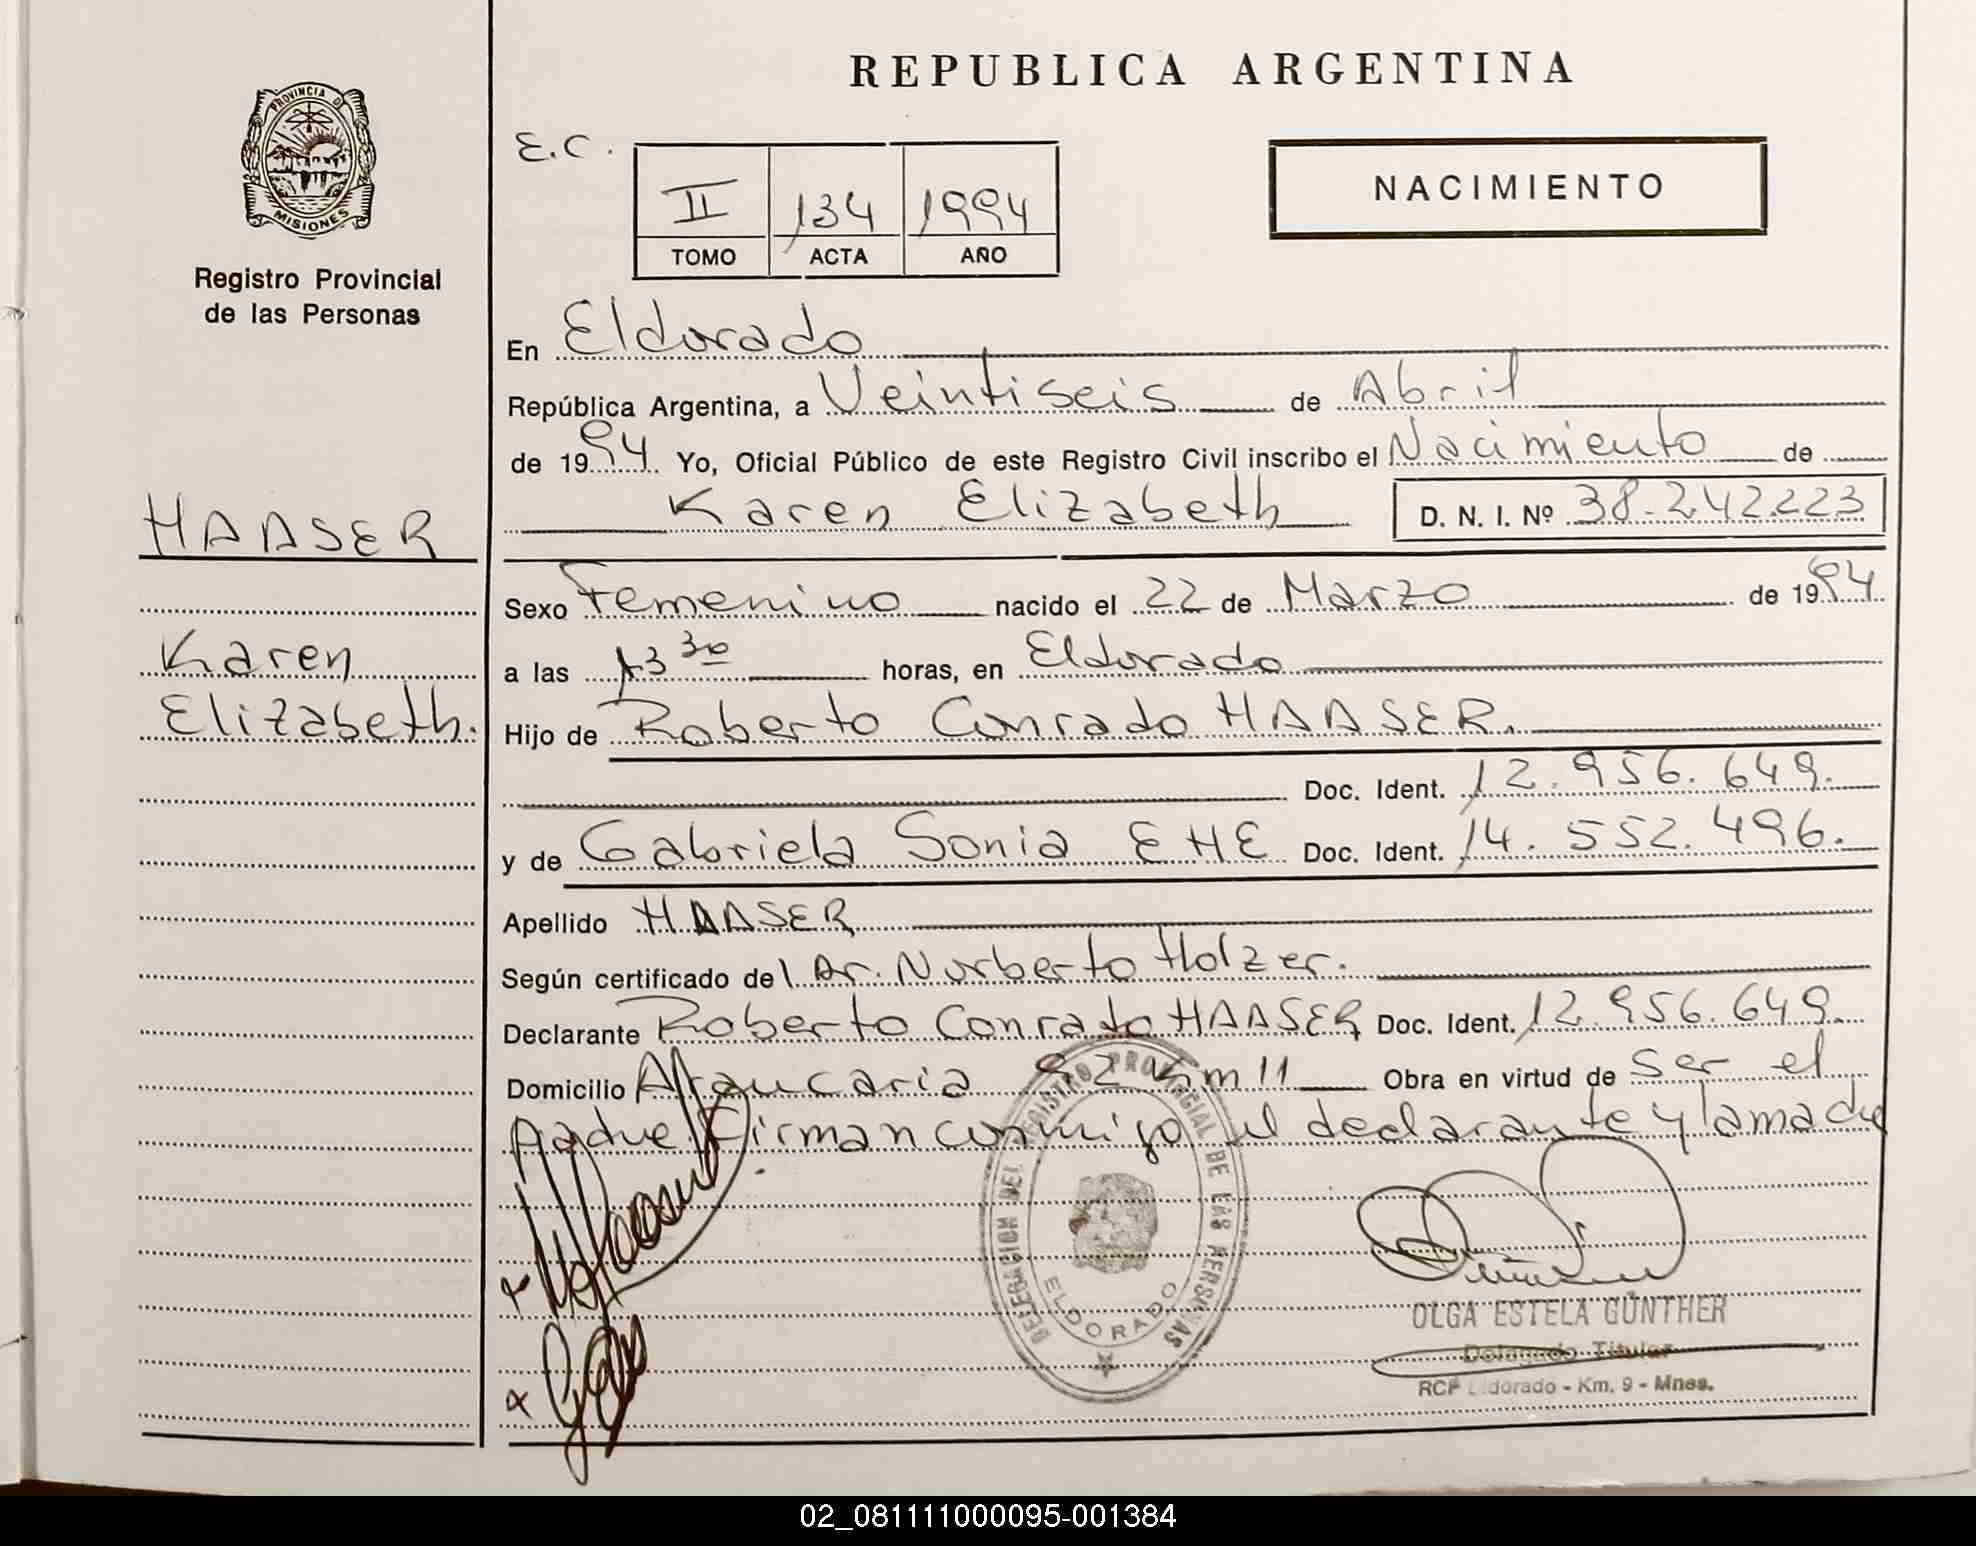 REPUBLICA ARGENTINA
PROVINCIA DE
MISIONES
Registro Provincial
de las Personas
E.C.
II 134 1994
TOMO ACTA AÑO
NACIMIENTO
En Eldorado
República Argentina, a Veintiseis de Abril
de 1994 Yo, Oficial Público de este Registro Civil inscribo el Nacimiento de
HAASER
Karen Elizabeth D. N. I. Nº 38.242.223
Sexo Femenino nacido el 22 de Marzo de 1994
Karen
a las 13 30 horas, en Eldorado
Elizabeth.
Hijo de Roberto Conrado HAASER.
Doc. Ident. 12.956.649.
y de Gabriela Sonia EHE Doc. Ident. 14.552.496.
Apellido HAASER
Según certificado del Dr. Norberto Holzer.
Declarante Roberto Conrado HAASER Doc. Ident. 12.956.649.
Domicilio Araucaria 92 Km 11 Obra en virtud de ser el
Padre. Firman conmigo el declarante y la madre
DELEGACION DEL REGISTRO PROVINCIAL DE LAS PERSONAS
ELDORADO
OLGA ESTELA GÜNTHER
Delegado Titular
RCP Eldorado - Km. 9 - Mnes.
02_081111000095-001384